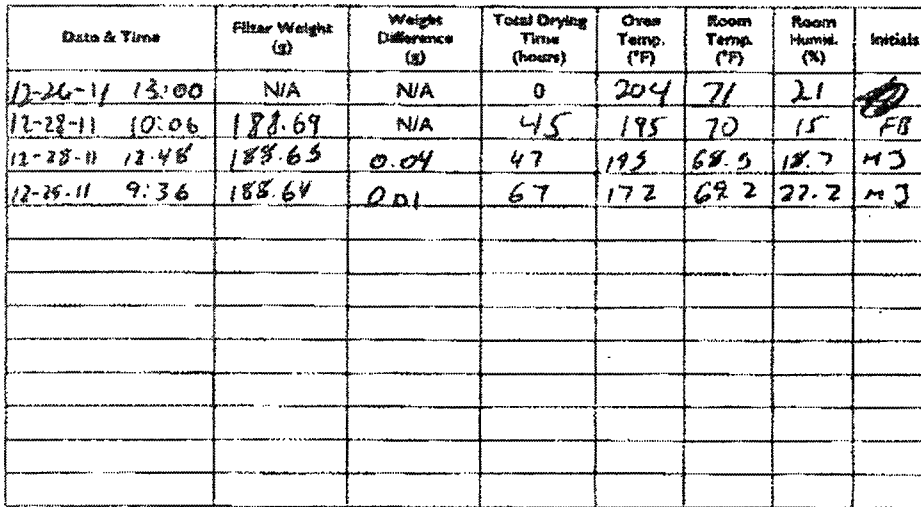 Date & Time Filter Weight (g) Weight Difference (g) Total Drying Time (hours) Oven Temp. (°F) Room Temp. (°F) Room Humid. (%) Initials
12-26-11 13:00 N/A N/A 0 204 71 21
12-28-11 10:06 188.69 N/A 45 195 70 15 FB
12-28-11 12:48 188.65 0.04 47 195 68.5 18.7 MJ
12-29-11 9:36 188.64 0.01 67 172 69.2 22.2 MJ